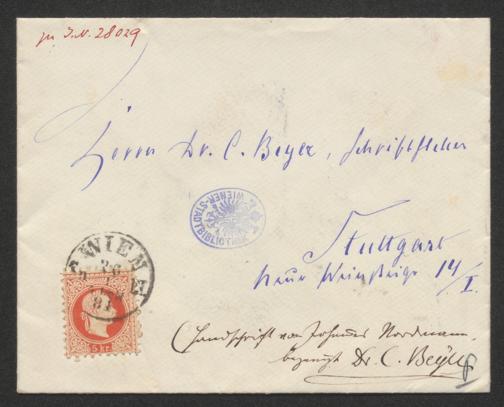 zu J.N. 28029
Herrn Dr. C. Beyer, Schriftsteller
WIENER-STADTBIBLIOTHEK
Stuttgart
Neue Weinsteige 14/I.
WIEN
26
81
5 kr.
Handschrift von Johannes Nordmann,
bezeugt Dr. C. Beyer